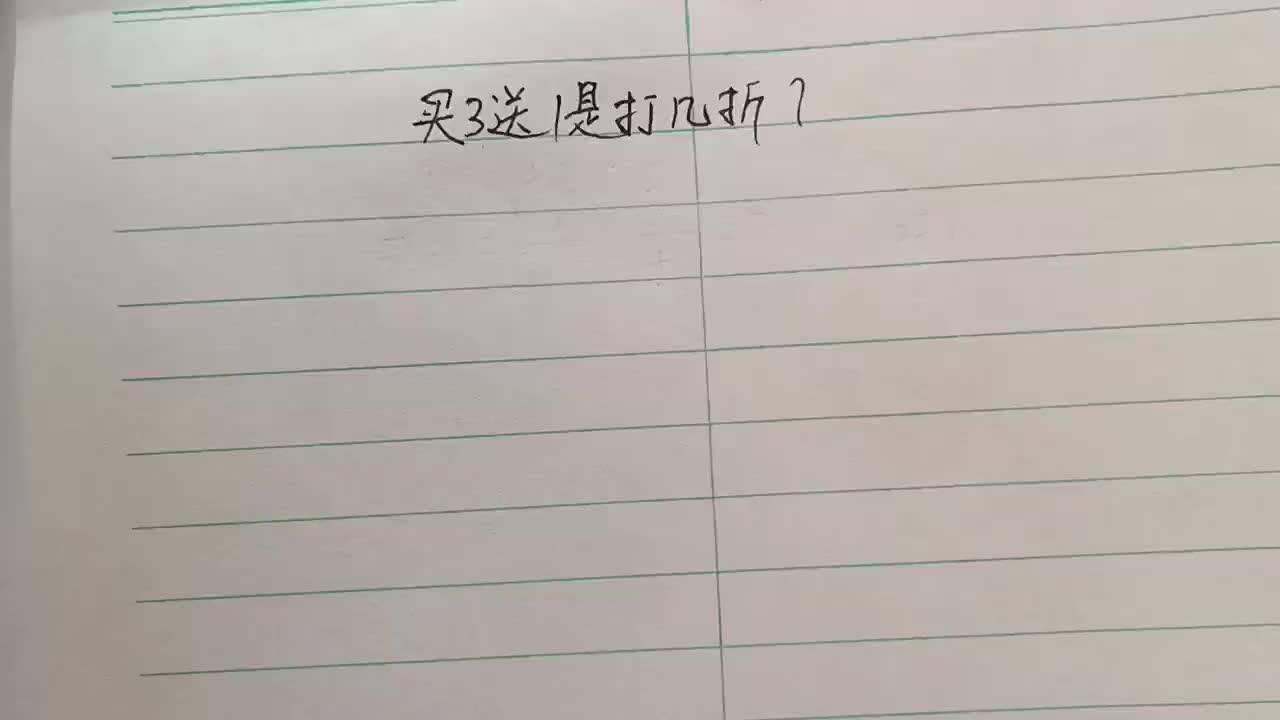 买3送1是打几折?